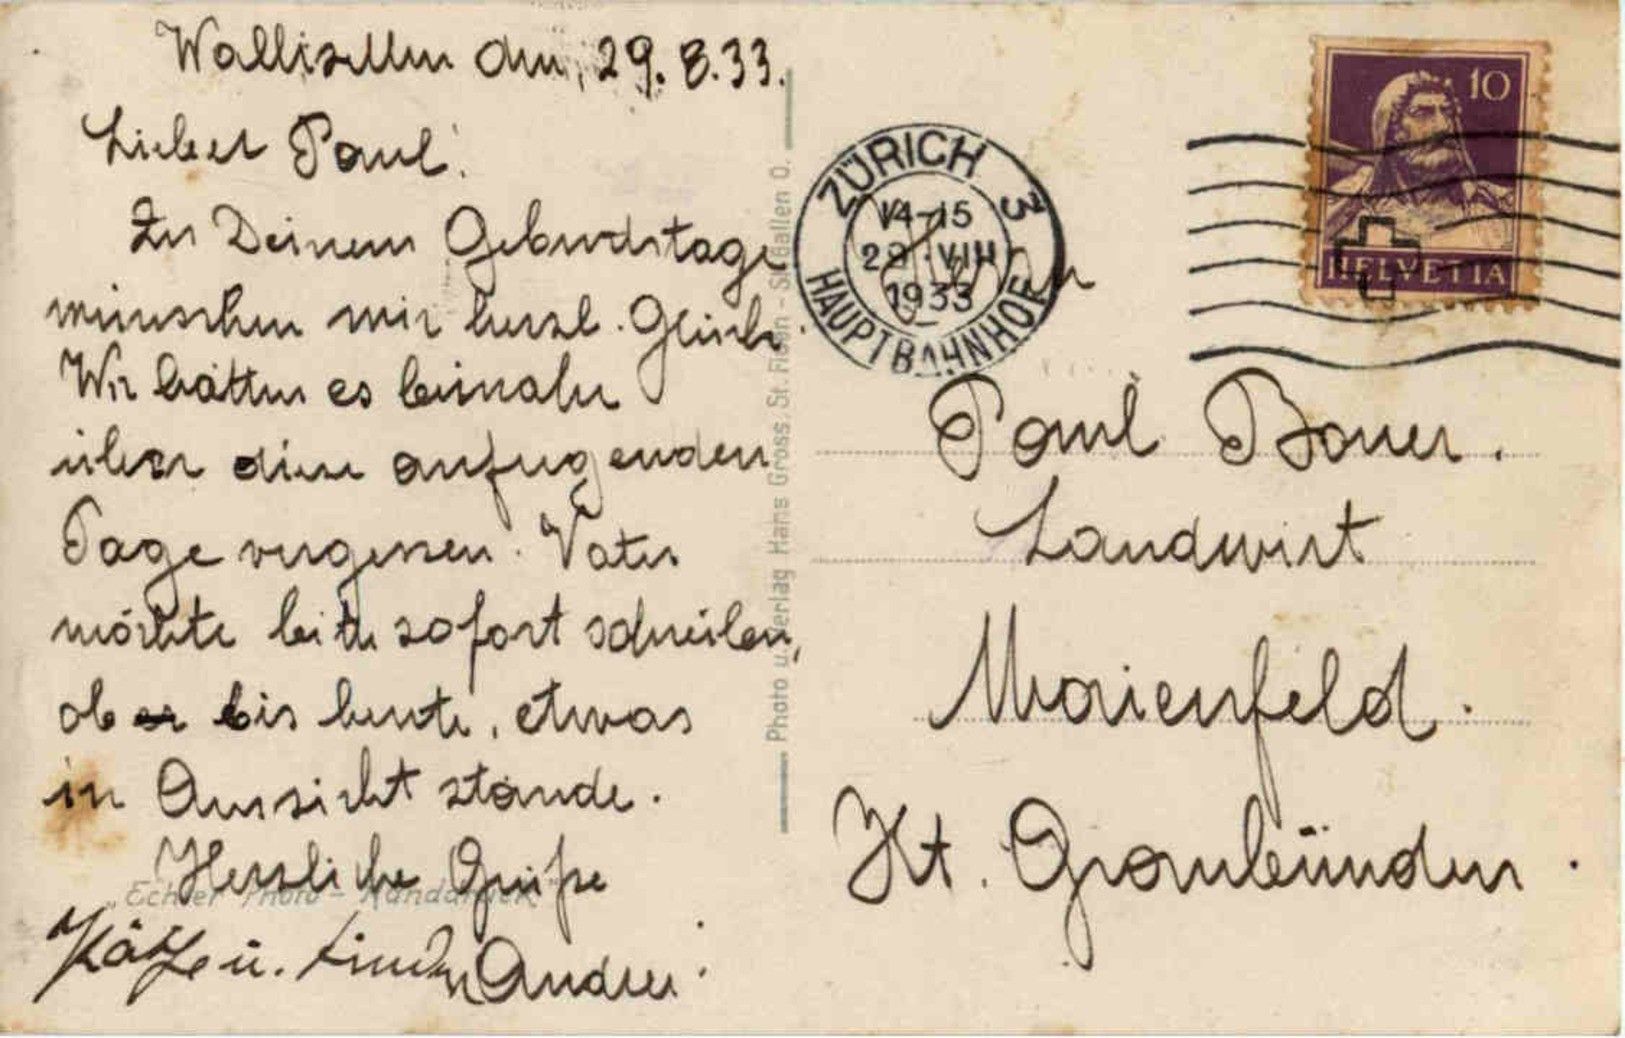 Wallisellen den, 29. 8. 33.
Lieber Paul!
Zu Deinem Geburtstage
wünschen wir herzl. Glück.
Wir hätten es beinahe
über diese
Tage vergessen. Vater
möchte bitte sofort schreiben,
ob er bis heute, etwas
in Aussicht stände.
Herzliche Grüsse
u. Andres
"Echter Photo-Handabzug"
Photo u. Verlag Hans Gross, St. Fiden - St. Gallen O.
ZÜRICH 3
14-15
29. VIII
1933
HAUPTBAHNHOF
10
HELVETIA
An
Paul Bauer.
Landwirt
Maienfeld.
Kt. Graubünden.